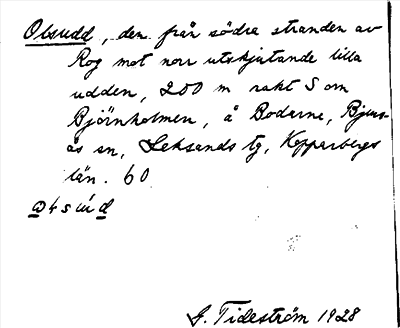 Obsudd, den från södra stranden av
Rog mot norr utskjutande lilla
udden, 200 m rakt S om
Björnholmen, å Bodarne, Bjurs-
ås sn, Leksands tg, Kopparbergs
län. 60
G. Tideström 1928